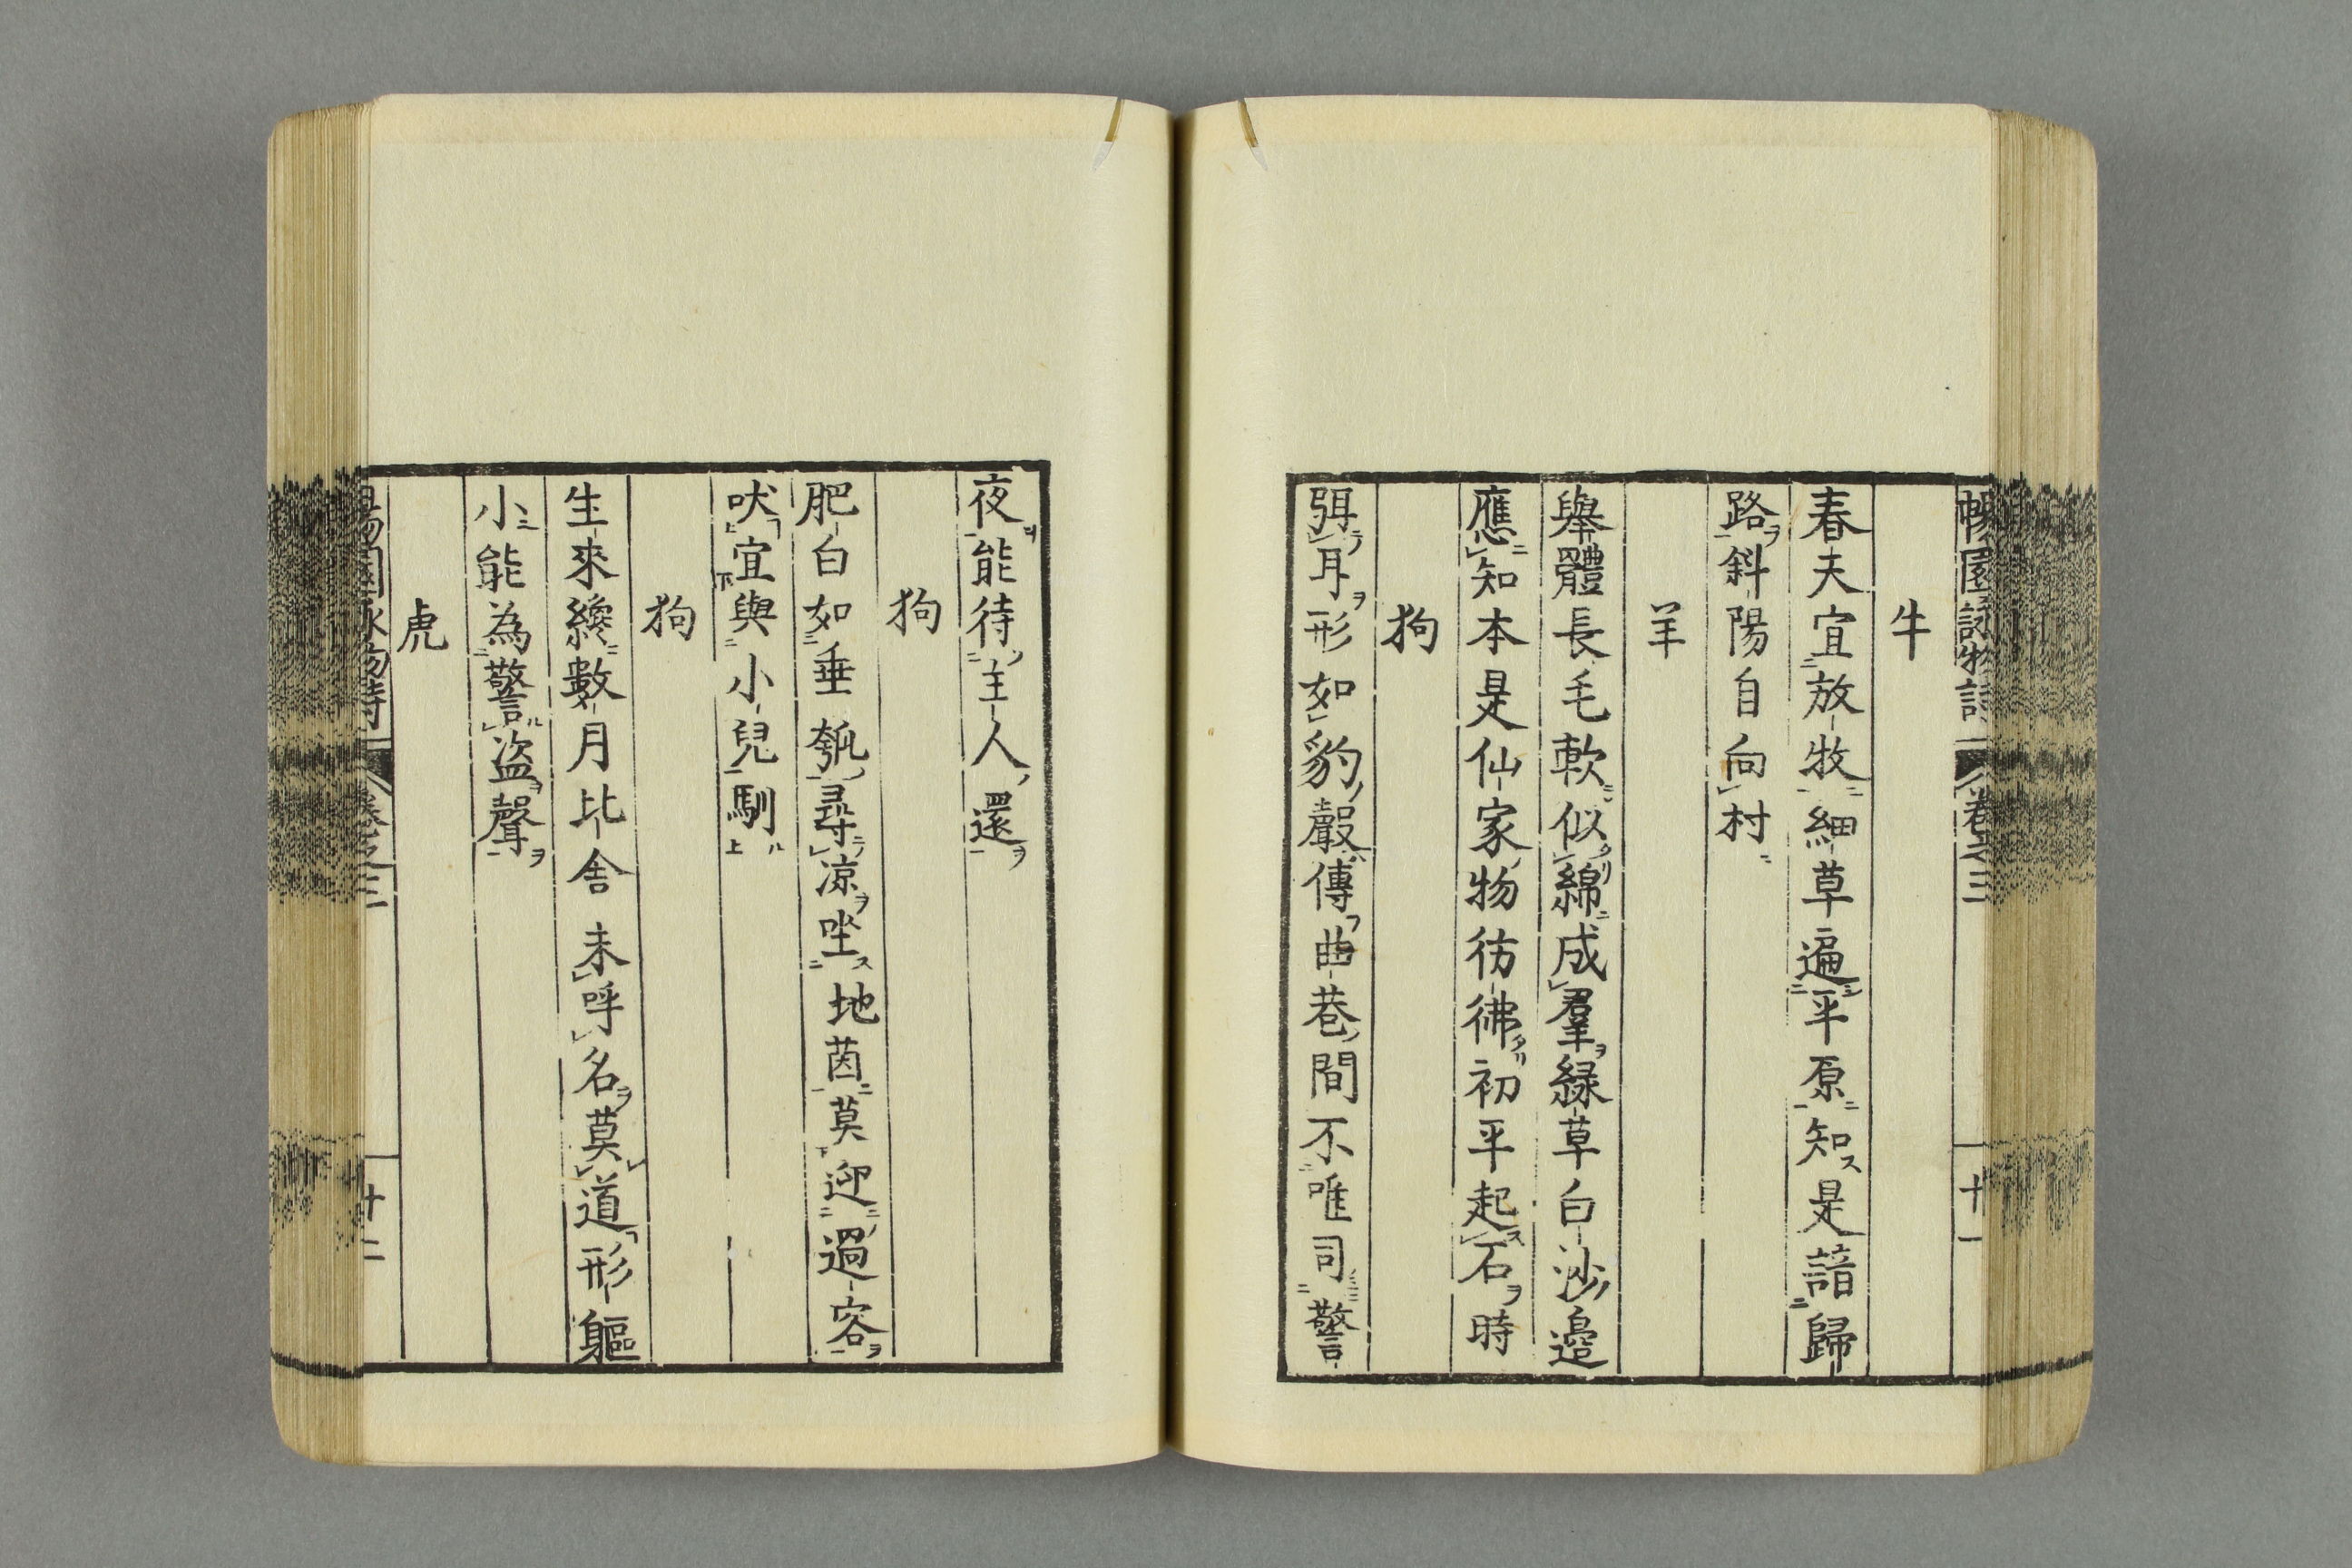 暢園詠物詩 卷之三 十一
牛
春夫宜放牧細草遍平原知是諳歸
路斜陽自向村
羊
舉體長毛軟似綿成羣綠草白沙邊
應知本是仙家物彷彿初平起石時
狗
弭耳形如豹聲傳曲巷間不唯司警
夜能待主人還
狗
肥白如垂瓠尋凉坐地茵莫迎過客
吠宜與小兒馴
狗
生來纔數月比舍未呼名莫道形軀
小能為警盜聲
虎
暢園詠物詩 卷之三 十二